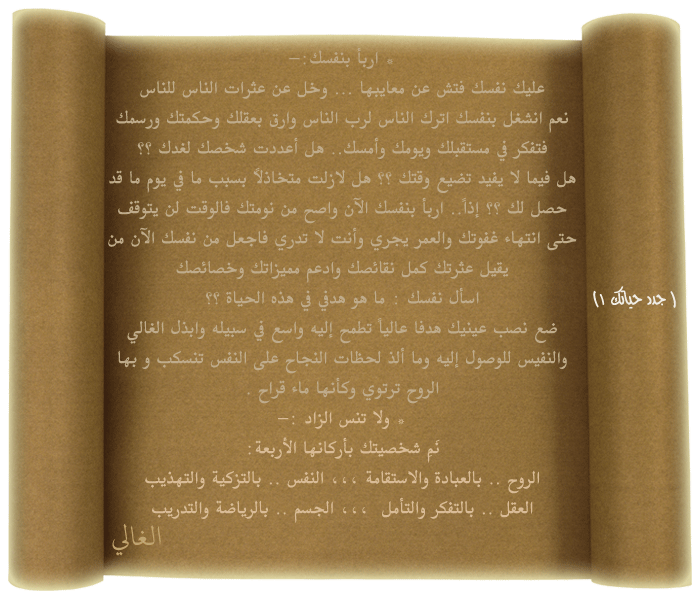 * اربأ بنفسك:-
عليك نفسك فتش عن معايبها ... وخل عن عثرات الناس للناس
نعم انشغل بنفسك اترك الناس لرب الناس وارق بعقلك وحكمتك ورسمك
فتفكر في مستقبلك ويومك وأمسك.. هل أعددت شخصك لغدك ؟؟
هل فيما لا يفيد تضيع وقتك ؟؟ هل لازلت متخاذلاً بسبب ما في يوم ما قد
حصل لك ؟؟ إذاً.. اربأ بنفسك الآن واصح من نومتك فالوقت لن يتوقف
حتى انتهاء غفوتك والعمر يجري وأنت لا تدري فاجعل من نفسك الآن من
يقيل عثرتك كمل نقائصك وادعم مميزاتك وخصائصك
اسأل نفسك : ما هو هدفي في هذه الحياة ؟؟
ضع نصب عينيك هدفا عالياً تطمح إليه واسع في سبيله وابذل الغالي
والنفيس للوصول إليه وما ألذ لحظات النجاح على النفس تنسكب و بها
الروح ترتوي وكأنها ماء قراح .
* ولا تنس الزاد :-
نَمِ شخصيتك بأركانها الأربعة:
الروح .. بالعبادة والاستقامة ،،، النفس .. بالتزكية والتهذيب
العقل .. بالتفكر والتأمل ،،، الجسم .. بالرياضة والتدريب
الغالي
( جدد حياتك ١)